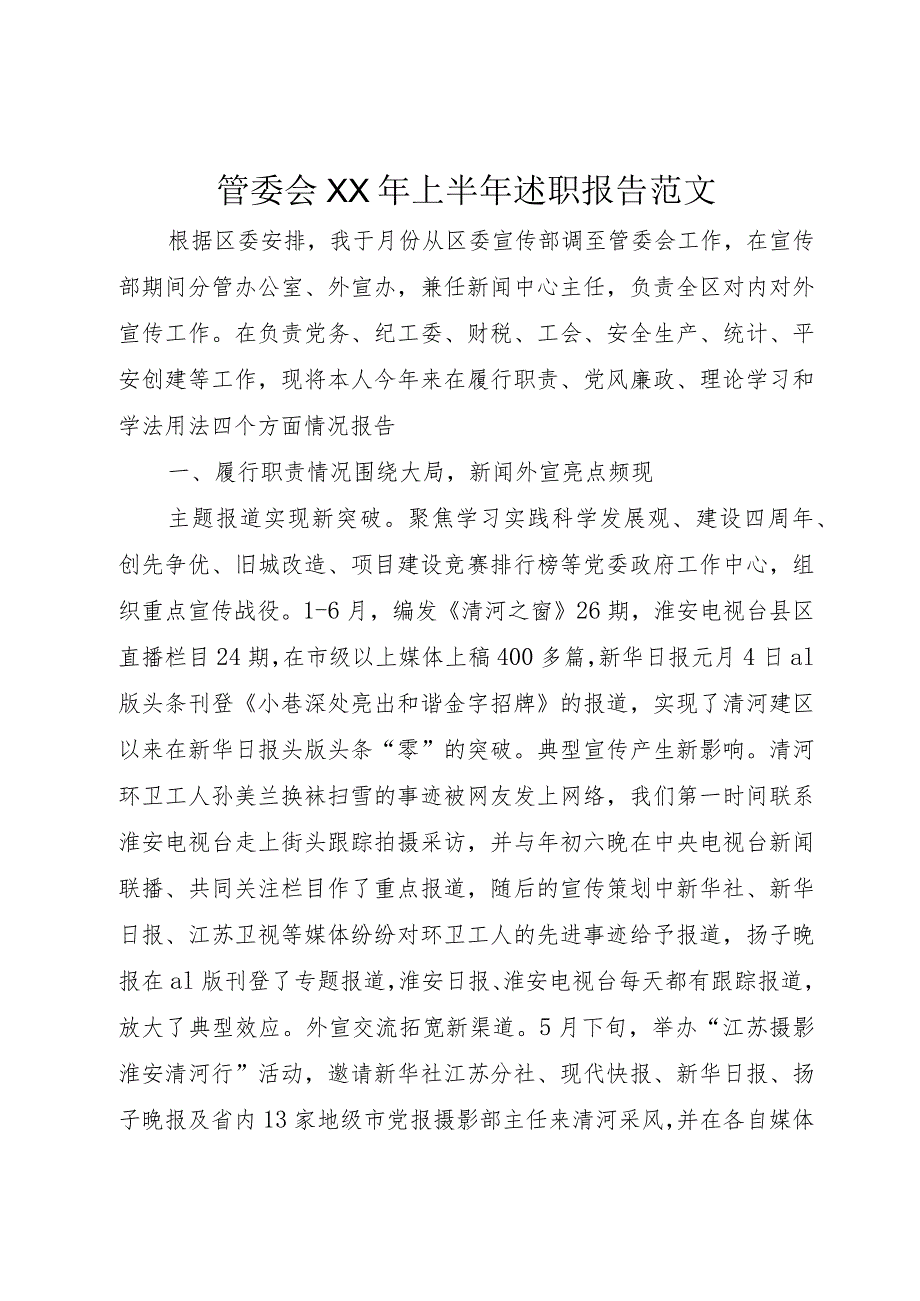 管委会XX年上半年述职报告范文
根据区委安排，我于月份从区委宣传部调至管委会工作，在宣传
部期间分管办公室、外宣办，兼任新闻中心主任，负责全区对内对外
宣传工作。在负责党务、纪工委、财税、工会、安全生产、统计、平
安创建等工作，现将本人今年来在履行职责、党风廉政、理论学习和
学法用法四个方面情况报告
一、履行职责情况围绕大局，新闻外宣亮点频现
主题报道实现新突破。聚焦学习实践科学发展观、建设四周年、
创先争优、旧城改造、项目建设竞赛排行榜等党委政府工作中心，组
织重点宣传战役。1-6月，编发《清河之窗》26期，淮安电视台县区
直播栏目24期，在市级以上媒体上稿400多篇，新华日报元月4日al
版头条刊登《小巷深处亮出和谐金字招牌》的报道，实现了清河建区
以来在新华日报头版头条“零”的突破。典型宣传产生新影响。清河
环卫工人孙美兰换袜扫雪的事迹被网友发上网络，我们第一时间联系
淮安电视台走上街头跟踪拍摄采访，并与年初六晚在中央电视台新闻
联播、共同关注栏目作了重点报道，随后的宣传策划中新华社、新华
日报、江苏卫视等媒体纷纷对环卫工人的先进事迹给予报道，扬子晚
报在al版刊登了专题报道，淮安日报、淮安电视台每天都有跟踪报道，
放大了典型效应。外宣交流拓宽新渠道。5月下旬，举办“江苏摄影
淮安清河行”活动，邀请新华社江苏分社、现代快报、新华日报、扬
子晚报及省内13家地级市党报摄影部主任来清河采风，并在各自媒体